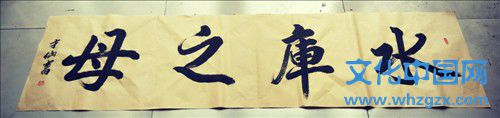 水庫之母
文化中国网
www.whzgzx.com